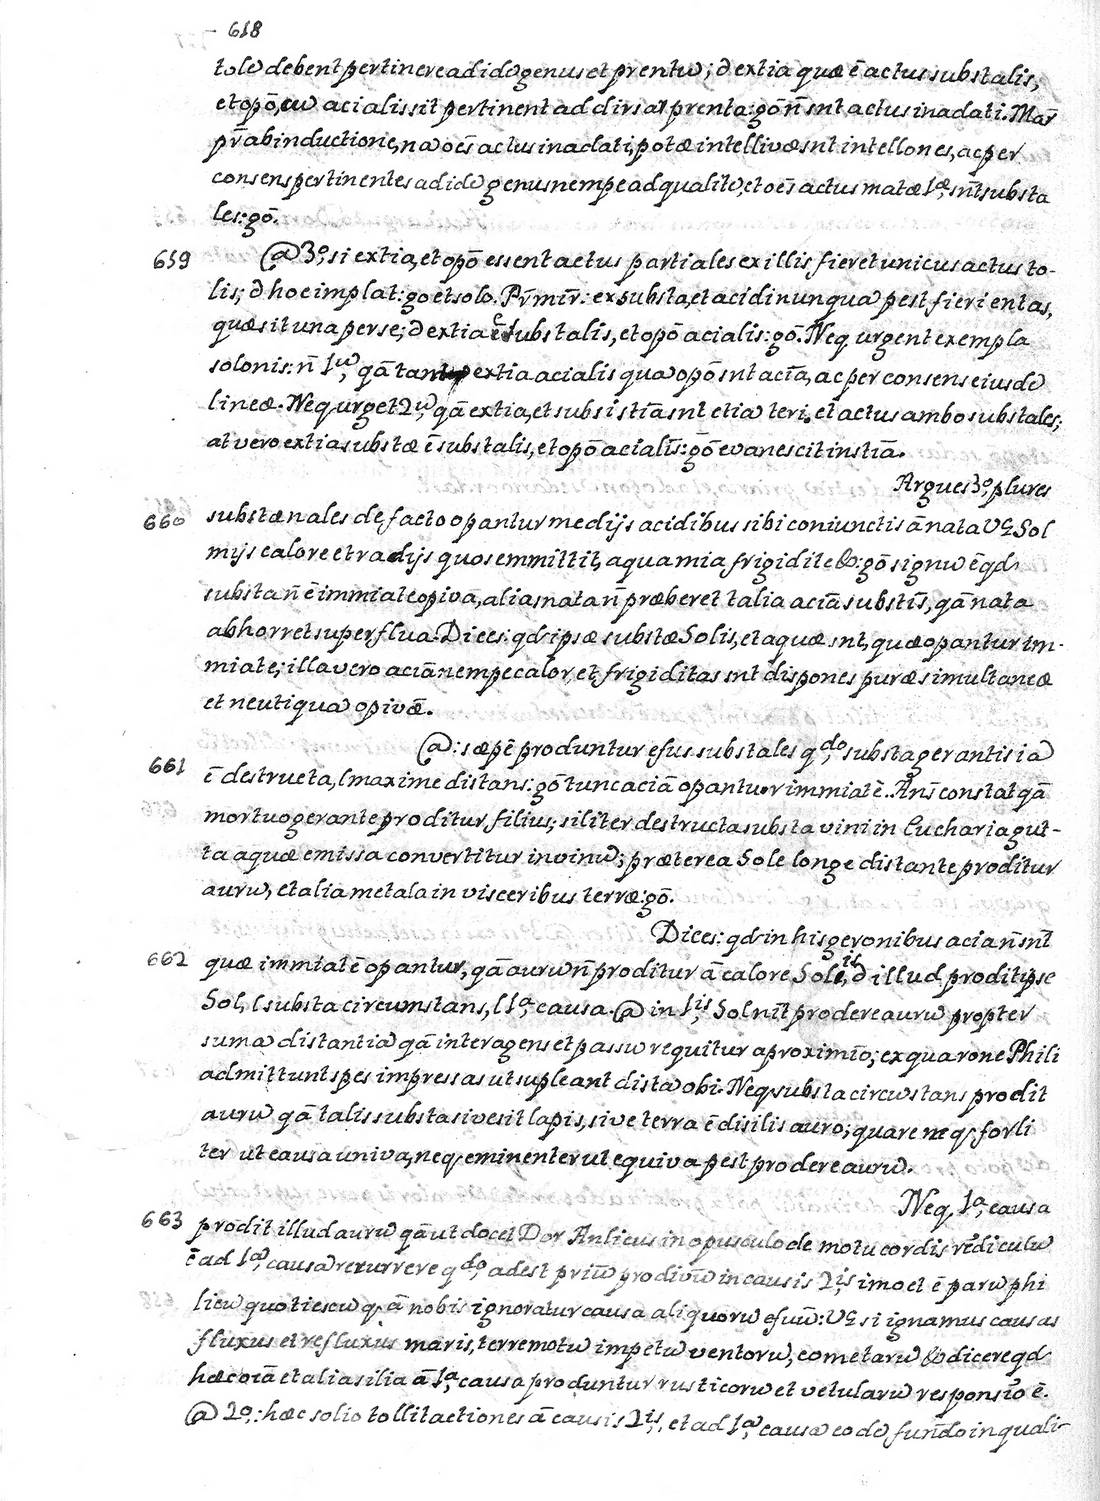 - 618
tole debent pertinere ad idē genus et prentū; ð extia quæ ē actus substalis,
et opō, cū acialis sit pertinent ad divsa prenta: gō ñ snt actus inadati. Mar̃
pr̃ ab inductione, na oēs actus inadati, potæ intellivæ snt intellones, ac per
consens pertinentes ad idē genus nempe ad qualitē, et oēs actus matæ 1æ, snt substa
les: gō.
659 @ 3º, si extia, et opō essent actus partiales ex illis fieret unicus actus to-
lis; ð hoc implat: go et solo. Pr̃ mir̃: ex substa, et acidi nunqua pest fieri entas,
quæ sit una per se; ð extia ē substalis, et opō acialis: gō. Neq. urgent exempla
solonis: ñ 1ũ, qā tam extia acialis qua opō snt aciā, ac per consens eiusdē
lineæ. Neq urget 2ũ, qā extia, et subsistiā snt etia teri, et actus ambo substales;
at vero extia substæ ē substalis, et opō acialis: gō evanescit instiā.
Argues 3º, plures
660 substænales de facto opantur medijs acidibus sibi coniunctis ā nata Vg Sol
mijs calore et radijs quos emmittit, aqua mia frigidite &: gō signū ē qd
substa ñ ē immiate opiva, alias nata ñ præberet talia aciā substis, qā nata
abhorret superflua. Dices: qd ipsæ substæ Solis, et aquæ snt, quæ opantur im-
miate; illa vero aciā: nempe calor, et frigiditas snt dispones puræ simultaneæ
et neutiqua opivæ.
@: sæpē produntur efus substales qdo, substa gerantis ia
661 ē destructa, l maxime distans: gō tunc aciā opantur immiatē. Añs constat qā
mortuo gerante proditur filius; siliter destructa substa vini in Eucharia gut-
ta aquæ emissa convertitur in vinū; præterea Sole longe distante proditur
aurū, et alia metala in visceribus terræ: gō.
Dices: qd in his geronibus acia ñ snt
662 quæ immiatē opantur, qā aurū ñ proditur ā calore Solis, ð illud prodit ipse
Sol, l substa circumstans, l 1a, causa. @ in 1is, Sol nit prodere aurū propter
suma distantia qā inter agens et passū requitur aproximio; ex qua rone Phili
admittunt spes impressas ut supleant dista obi. Neq substa circūstans prodit
aurū qā talis substa sive sit lapis, sive terra ē disilis auro; quare neq. forli
ter ut causa univa, neq. eminenter ut equiva pest prodere aurū.
Neq. 1a, causa
663 prodit illud aurū qā ut docet Dor Anlicus in opusculo de motu cordis rediculū
ē ad 1a, causa recurrere qdo, adest priũ prodivũ in causis 2is, imo et ē parū phi
licū quotiescūq. ā nobis ignoratur causa aliquorū efuũ: Vg si ignamus causas
fluxus et refluxus maris, terremotū impetū ventorū, cometarū & dicere qd
hæc oiā et alia silia ā 1a, causa produntur rusticorū et vetularū responsio ē.
@ 2º: hæc solio tollit actiones ā causis 2is, et ad 1a, causa eodē fundo in quali-